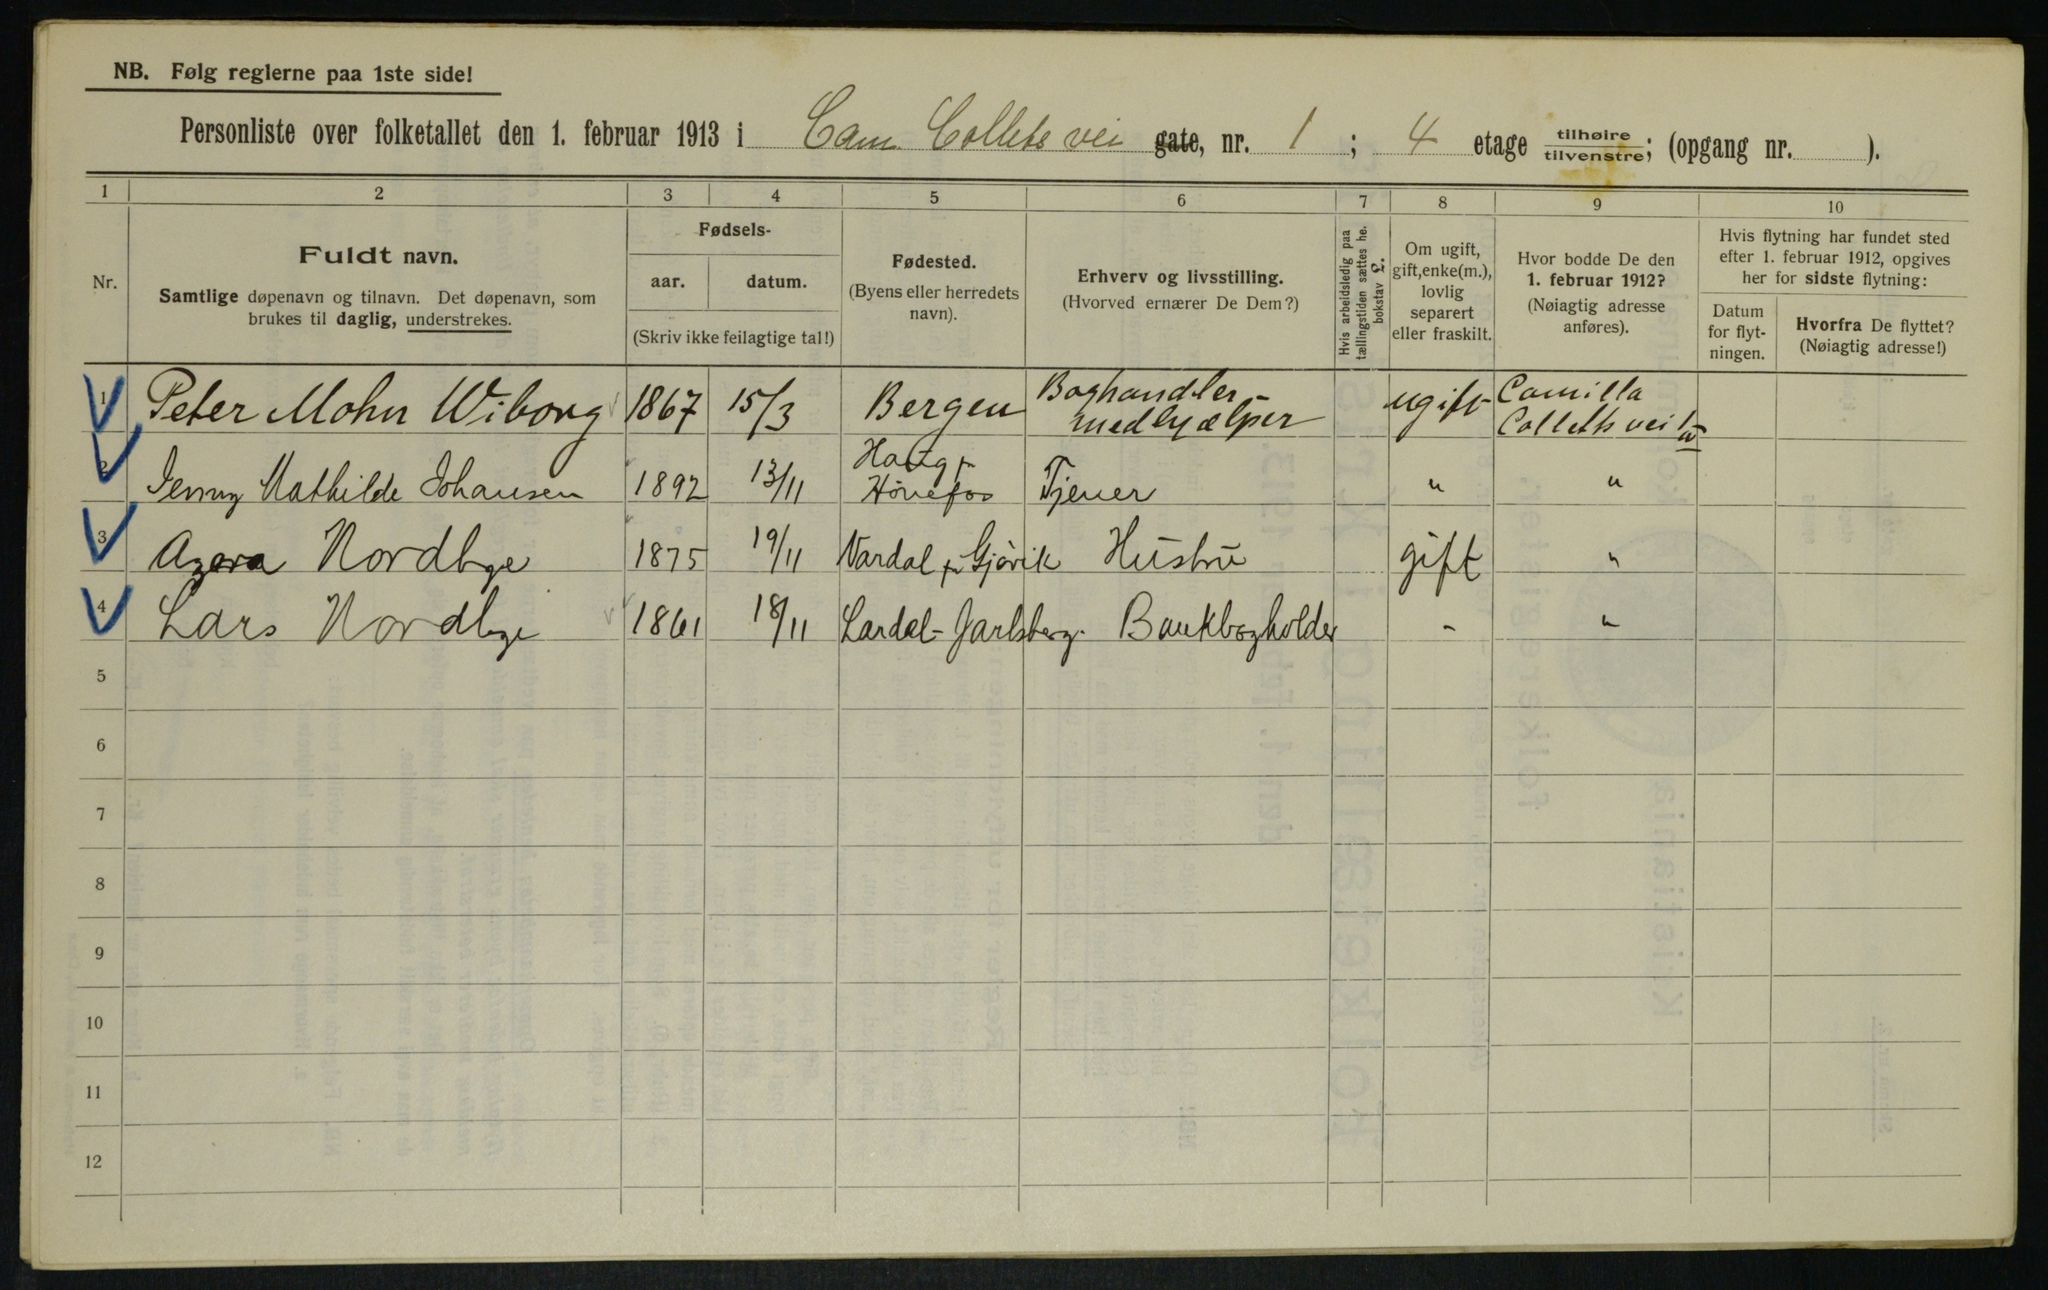 NB. Følg reglerne paa 1ste side!
Personliste over folketallet den 1. februar 1913 i Cam Colletsvei gate, nr. 1 ; 4 etage tilhøire / tilvenstre; (opgang nr. ).
1 2 3 4 5 6 7 8 9 10
Nr.
Fuldt navn.
Samtlige døpenavn og tilnavn. Det døpenavn, som
brukes til daglig, understrekes.
Fødsels-
aar. datum.
(Skriv ikke feilagtige tal!)
Fødested.
(Byens eller herredets
navn).
Erhverv og livsstilling.
(Hvorved ernærer De Dem?)
Hvis arbeidsledig paa
tællingstiden sættes he.
bokstav L.
Om ugift,
gift, enke(m.),
lovlig
separert
eller fraskilt.
Hvor bodde De den
1. februar 1912?
(Nøiagtig adresse
anføres).
Hvis flytning har fundet sted
efter 1. februar 1912, opgives
her for sidste flytning:
Datum
for flyt-
ningen.
Hvorfra De flyttet?
(Nøiagtig adresse!)
1 Peter Mohn Wiborg 1867 15/3 Bergen Boghandler-
medhjælper ugift Camilla
Colletts vei 1 IV
2 Jenny Mathilde Johansen 1892 13/11 Haug pr
Hönefos Tjener " "
3 Agora Nordbye 1875 19/11 Vardal pr Gjövik Hustru gift "
4 Lars Nordbye 1861 18/11 Lardal-Jarlsberg. Bankbogholder - "
5
6
7
8
9
10
11
12